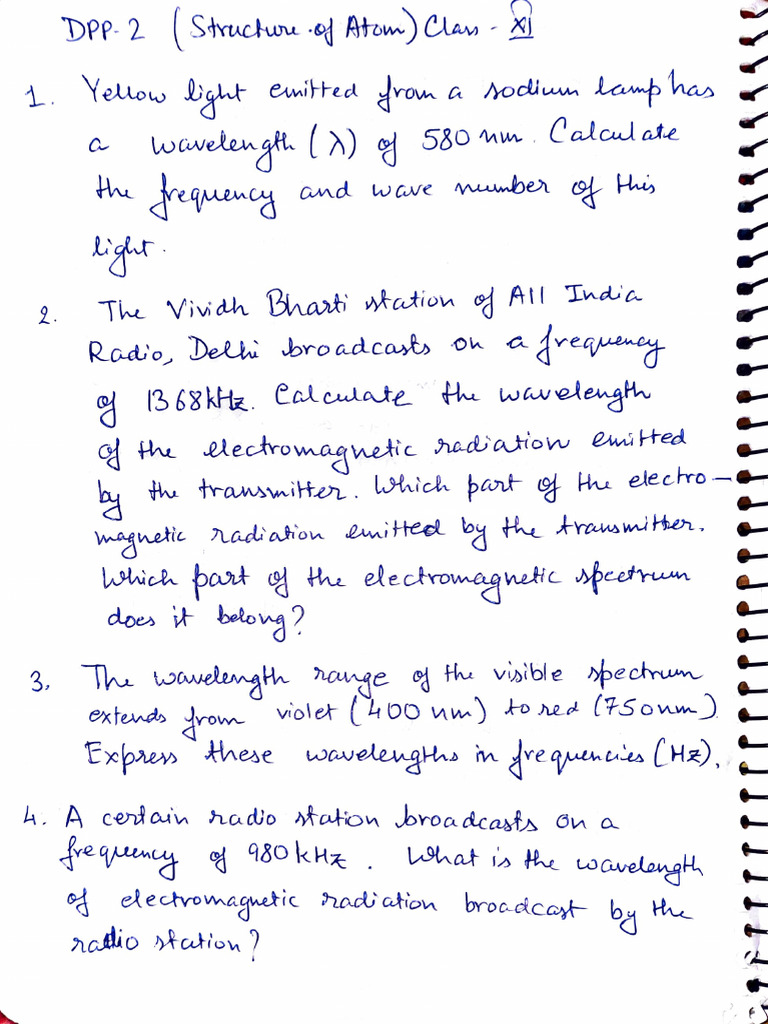 DPP-2 (Structure of Atom) Class - XI
1. Yellow light emitted from a sodium lamp has
a wavelength (λ) of 580 nm. Calculate
the frequency and wave number of this
light.
2. The Vividh Bharti station of All India
Radio, Delhi broadcasts on a frequency
of 1368 kHz. Calculate the wavelength
of the electromagnetic radiation emitted
by the transmitter. Which part of the electro-
magnetic radiation emitted by the transmitter.
Which part of the electromagnetic spectrum
does it belong?
3. The wavelength range of the visible spectrum
extends from violet (400 nm) to red (750nm)
Express these wavelengths in frequencies (Hz).
4. A certain radio station broadcasts on a
frequency of 980 kHz. What is the wavelength
of electromagnetic radiation broadcast by the
radio station?